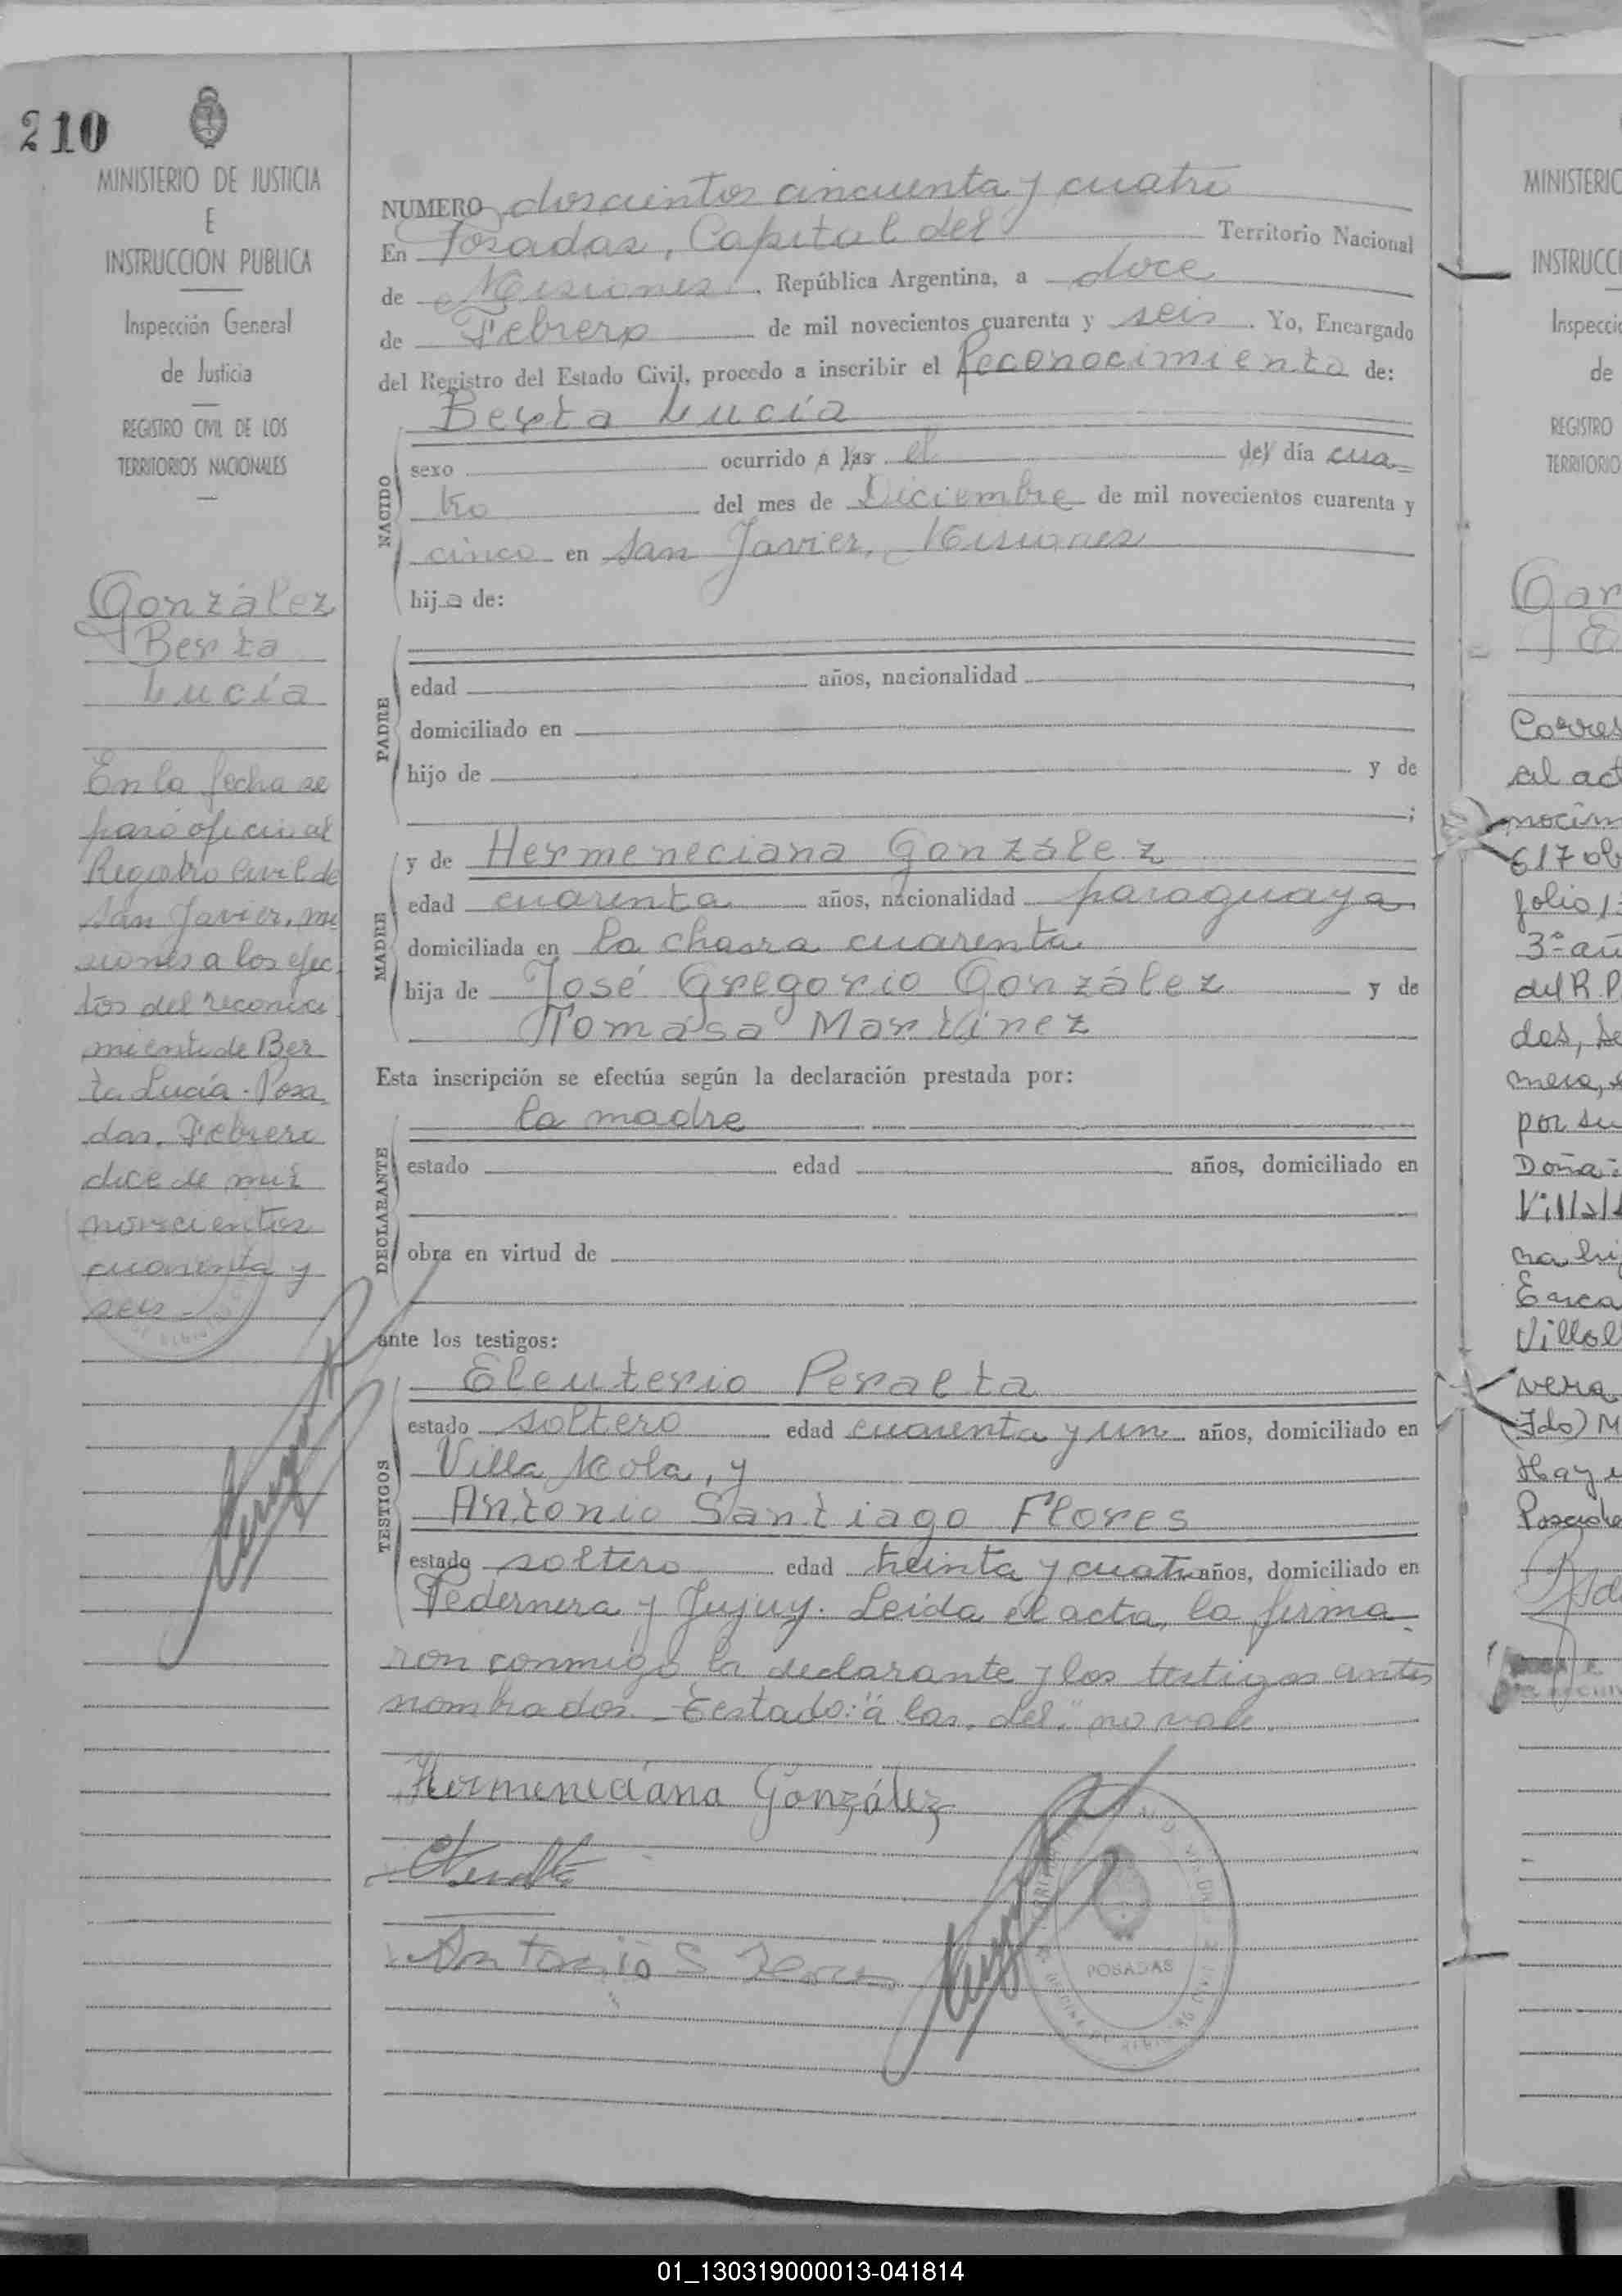 210
MINISTERIO DE JUSTICIA
E
INSTRUCCION PUBLICA
Inspección General
de Justicia
REGISTRO CIVIL DE LOS
TERRITORIOS NACIONALES
González
Berta
Lucía
En la fecha se
pasó oficio al
Registro Civil de
San Javier, Mi
siones a los efec
tos del reconoci
miento de Ber
ta Lucía. Posa
das, Febrero
doce de mil
novecientos
cuarenta y
seis.-
NUMERO doscientos cincuenta y cuatro
En Posadas, Capital del Territorio Nacional
de Misiones, República Argentina, a doce
de Febrero de mil novecientos cuarenta y seis. Yo, Encargado
del Registro del Estado Civil, procedo a inscribir el Reconocimiento de:
Berta Lucía
NACIDO
sexo ocurrido a las el del día cua-
tro del mes de Diciembre de mil novecientos cuarenta y
cinco en San Javier, Misiones
hija de:
PADRE
edad años, nacionalidad
domiciliado en
hijo de y de
;
MADRE
y de Hermeneciana González
edad cuarenta años, nacionalidad paraguaya
domiciliada en la chacra cuarenta
hija de José Gregorio González y de
Tomása Martínez
Esta inscripción se efectúa según la declaración prestada por:
la madre
DECLARANTE
estado edad años, domiciliado en
obra en virtud de
ante los testigos:
Eleuterio Peralta
TESTIGOS
estado soltero edad cuarenta y un años, domiciliado en
Villa Mola, y
Antonio Santiago Flores
estado soltero edad treinta y cuatro años, domiciliado en
Pedernera y Jujuy. Leida el acta, la firma-
ron conmigo la declarante y los testigos antes
nombrados.- Testado: "a las, del," no vale.
Hermeneciana González
Antonio S Flores
POSADAS
MINISTERIO
INSTRUCCI
Inspecci
de
REGISTRO
TERRITORIO
Gar
Corres
al act
nocim
617 ob
folio 1
3º añ
del R.P.
das, Se
mera,
por su
Doña
Villal
na hi
Enca
Villal
vera
Fdo) M
Hay u
Posada
01_130319000013-041814